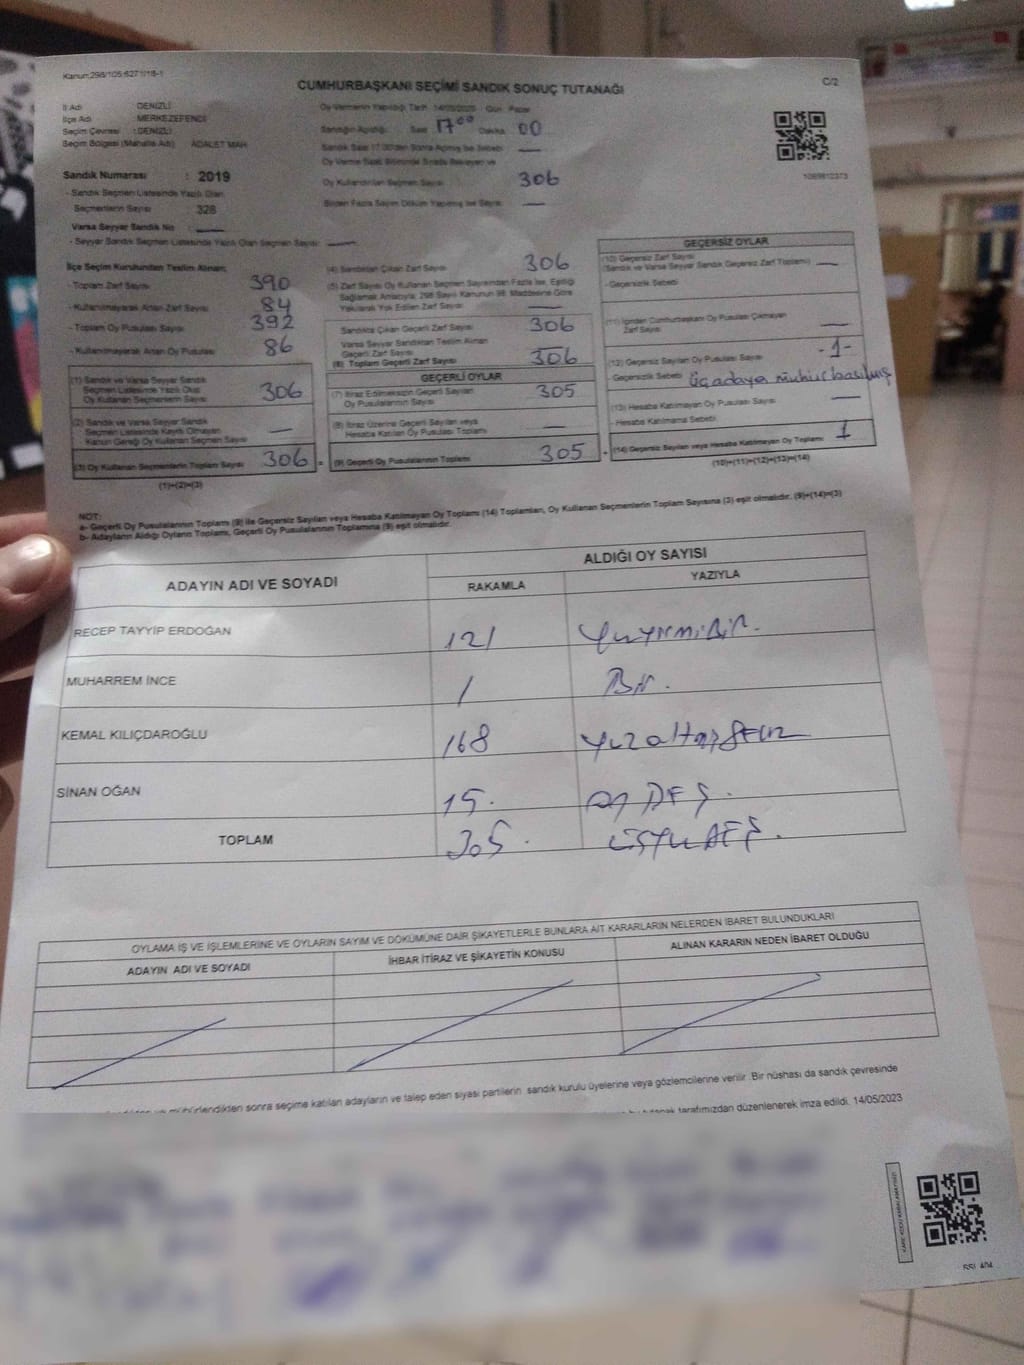 Kanun:298/105;6271/18-1
CUMHURBAŞKANI SEÇİMİ SANDIK SONUÇ TUTANAĞI
C/2
İl Adı DENİZLİ
İlçe Adı MERKEZEFENDİ
Seçim Çevresi : DENİZLİ
Seçim Bölgesi (Mahalle Adı) ADALET MAH
Oy Vermenin Yapıldığı Tarih 14/05/2023 Gün Pazar
Sandığın Açıldığı Saat 17⁰⁰ Dakika 00
Sandık Saat 17.00'den Sonra Açılmış İse Sebebi —
Oy Verme Saati Bitiminde Sırada Bekleyen ve
Oy Kullandırılan Seçmen Sayısı 306
Birden Fazla Sayım Döküm Yapılmış İse Sayısı —
Sandık Numarası : 2019
- Sandık Seçmen Listesinde Yazılı Olan
Seçmenlerin Sayısı : 328
Varsa Seyyar Sandık No : —
- Seyyar Sandık Seçmen Listesinde Yazılı Olan Seçmen Sayısı: —
İlçe Seçim Kurulundan Teslim Alınan;
- Toplam Zarf Sayısı 390
- Kullanılmayarak Artan Zarf Sayısı 84
- Toplam Oy Pusulası Sayısı 392
- Kullanılmayarak Artan Oy Pusulası 86
(1) Sandık ve Varsa Seyyar Sandık
Seçmen Listesinde Yazılı Olup
Oy Kullanan Seçmenlerin Sayısı 306
(2) Sandık ve Varsa Seyyar Sandık
Seçmen Listesinde Kayıtlı Olmayan
Kanun Gereği Oy Kullanan Seçmen Sayısı —
(3) Oy Kullanan Seçmenlerin Toplam Sayısı 306
(1)+(2)=(3)
(4) Sandıktan Çıkan Zarf Sayısı 306
(5) Zarf Sayısı Oy Kullanan Seçmen Sayısından Fazla İse, Eşitliği
Sağlamak Amacıyla; 298 Sayılı Kanunun 98. Maddesine Göre
Yakılarak Yok Edilen Zarf Sayısı —
Sandıkta Çıkan Geçerli Zarf Sayısı 306
Varsa Seyyar Sandıktan Teslim Alınan
Geçerli Zarf Sayısı —
(6) Toplam Geçerli Zarf Sayısı 306
GEÇERLİ OYLAR
(7) İtiraz Edilmeksizin Geçerli Sayılan
Oy Pusulalarının Sayısı 305
(8) İtiraz Üzerine Geçerli Sayılan veya
Hesaba Katılan Oy Pusulası Toplamı —
(9) Geçerli Oy Pusulalarının Toplamı 305
GEÇERSİZ OYLAR
(10) Geçersiz Zarf Sayısı
(Sandık ve Varsa Seyyar Sandık Geçersiz Zarf Toplamı) —
- Geçersizlik Sebebi
(11) İçinden Cumhurbaşkanı Oy Pusulası Çıkmayan
Zarf Sayısı —
(12) Geçersiz Sayılan Oy Pusulası Sayısı -1-
- Geçersizlik Sebebi üç adaya mühür basılmış
(13) Hesaba Katılmayan Oy Pusulası Sayısı —
- Hesaba Katılmama Sebebi:
(14) Geçersiz Sayılan veya Hesaba Katılmayan Oy Toplamı 1
(10)+(11)+(12)+(13)=(14)
NOT:
a- Geçerli Oy Pusulalarının Toplamı (9) ile Geçersiz Sayılan veya Hesaba Katılmayan Oy Toplamı (14) Toplamları, Oy Kullanan Seçmenlerin Toplam Sayısına (3) eşit olmalıdır. (9)+(14)=(3)
b- Adayların Aldığı Oyların Toplamı, Geçerli Oy Pusulalarının Toplamına (9) eşit olmalıdır.
ADAYIN ADI VE SOYADI
ALDIĞI OY SAYISI
RAKAMLA YAZIYLA
RECEP TAYYİP ERDOĞAN 121 yüzyirmibir.
MUHARREM İNCE 1 Bir.
KEMAL KILIÇDAROĞLU 168 yüzaltmışsekiz
SİNAN OĞAN 15. onbeş.
TOPLAM 305. üçyüzbeş.
OYLAMA İŞ VE İŞLEMLERİNE VE OYLARIN SAYIM VE DÖKÜMÜNE DAİR ŞİKAYETLERLE BUNLARA AİT KARARLARIN NELERDEN İBARET BULUNDUKLARI
ADAYIN ADI VE SOYADI İHBAR İTİRAZ VE ŞİKAYETİN KONUSU ALINAN KARARIN NEDEN İBARET OLDUĞU
mühürlendikten sonra seçime katılan adayların ve talep eden siyasi partilerin sandık kurulu üyelerine veya gözlemcilerine verilir. Bir nüshası da sandık çevresinde
bu tutanak tarafımızdan düzenlenerek imza edildi. 14/05/2023